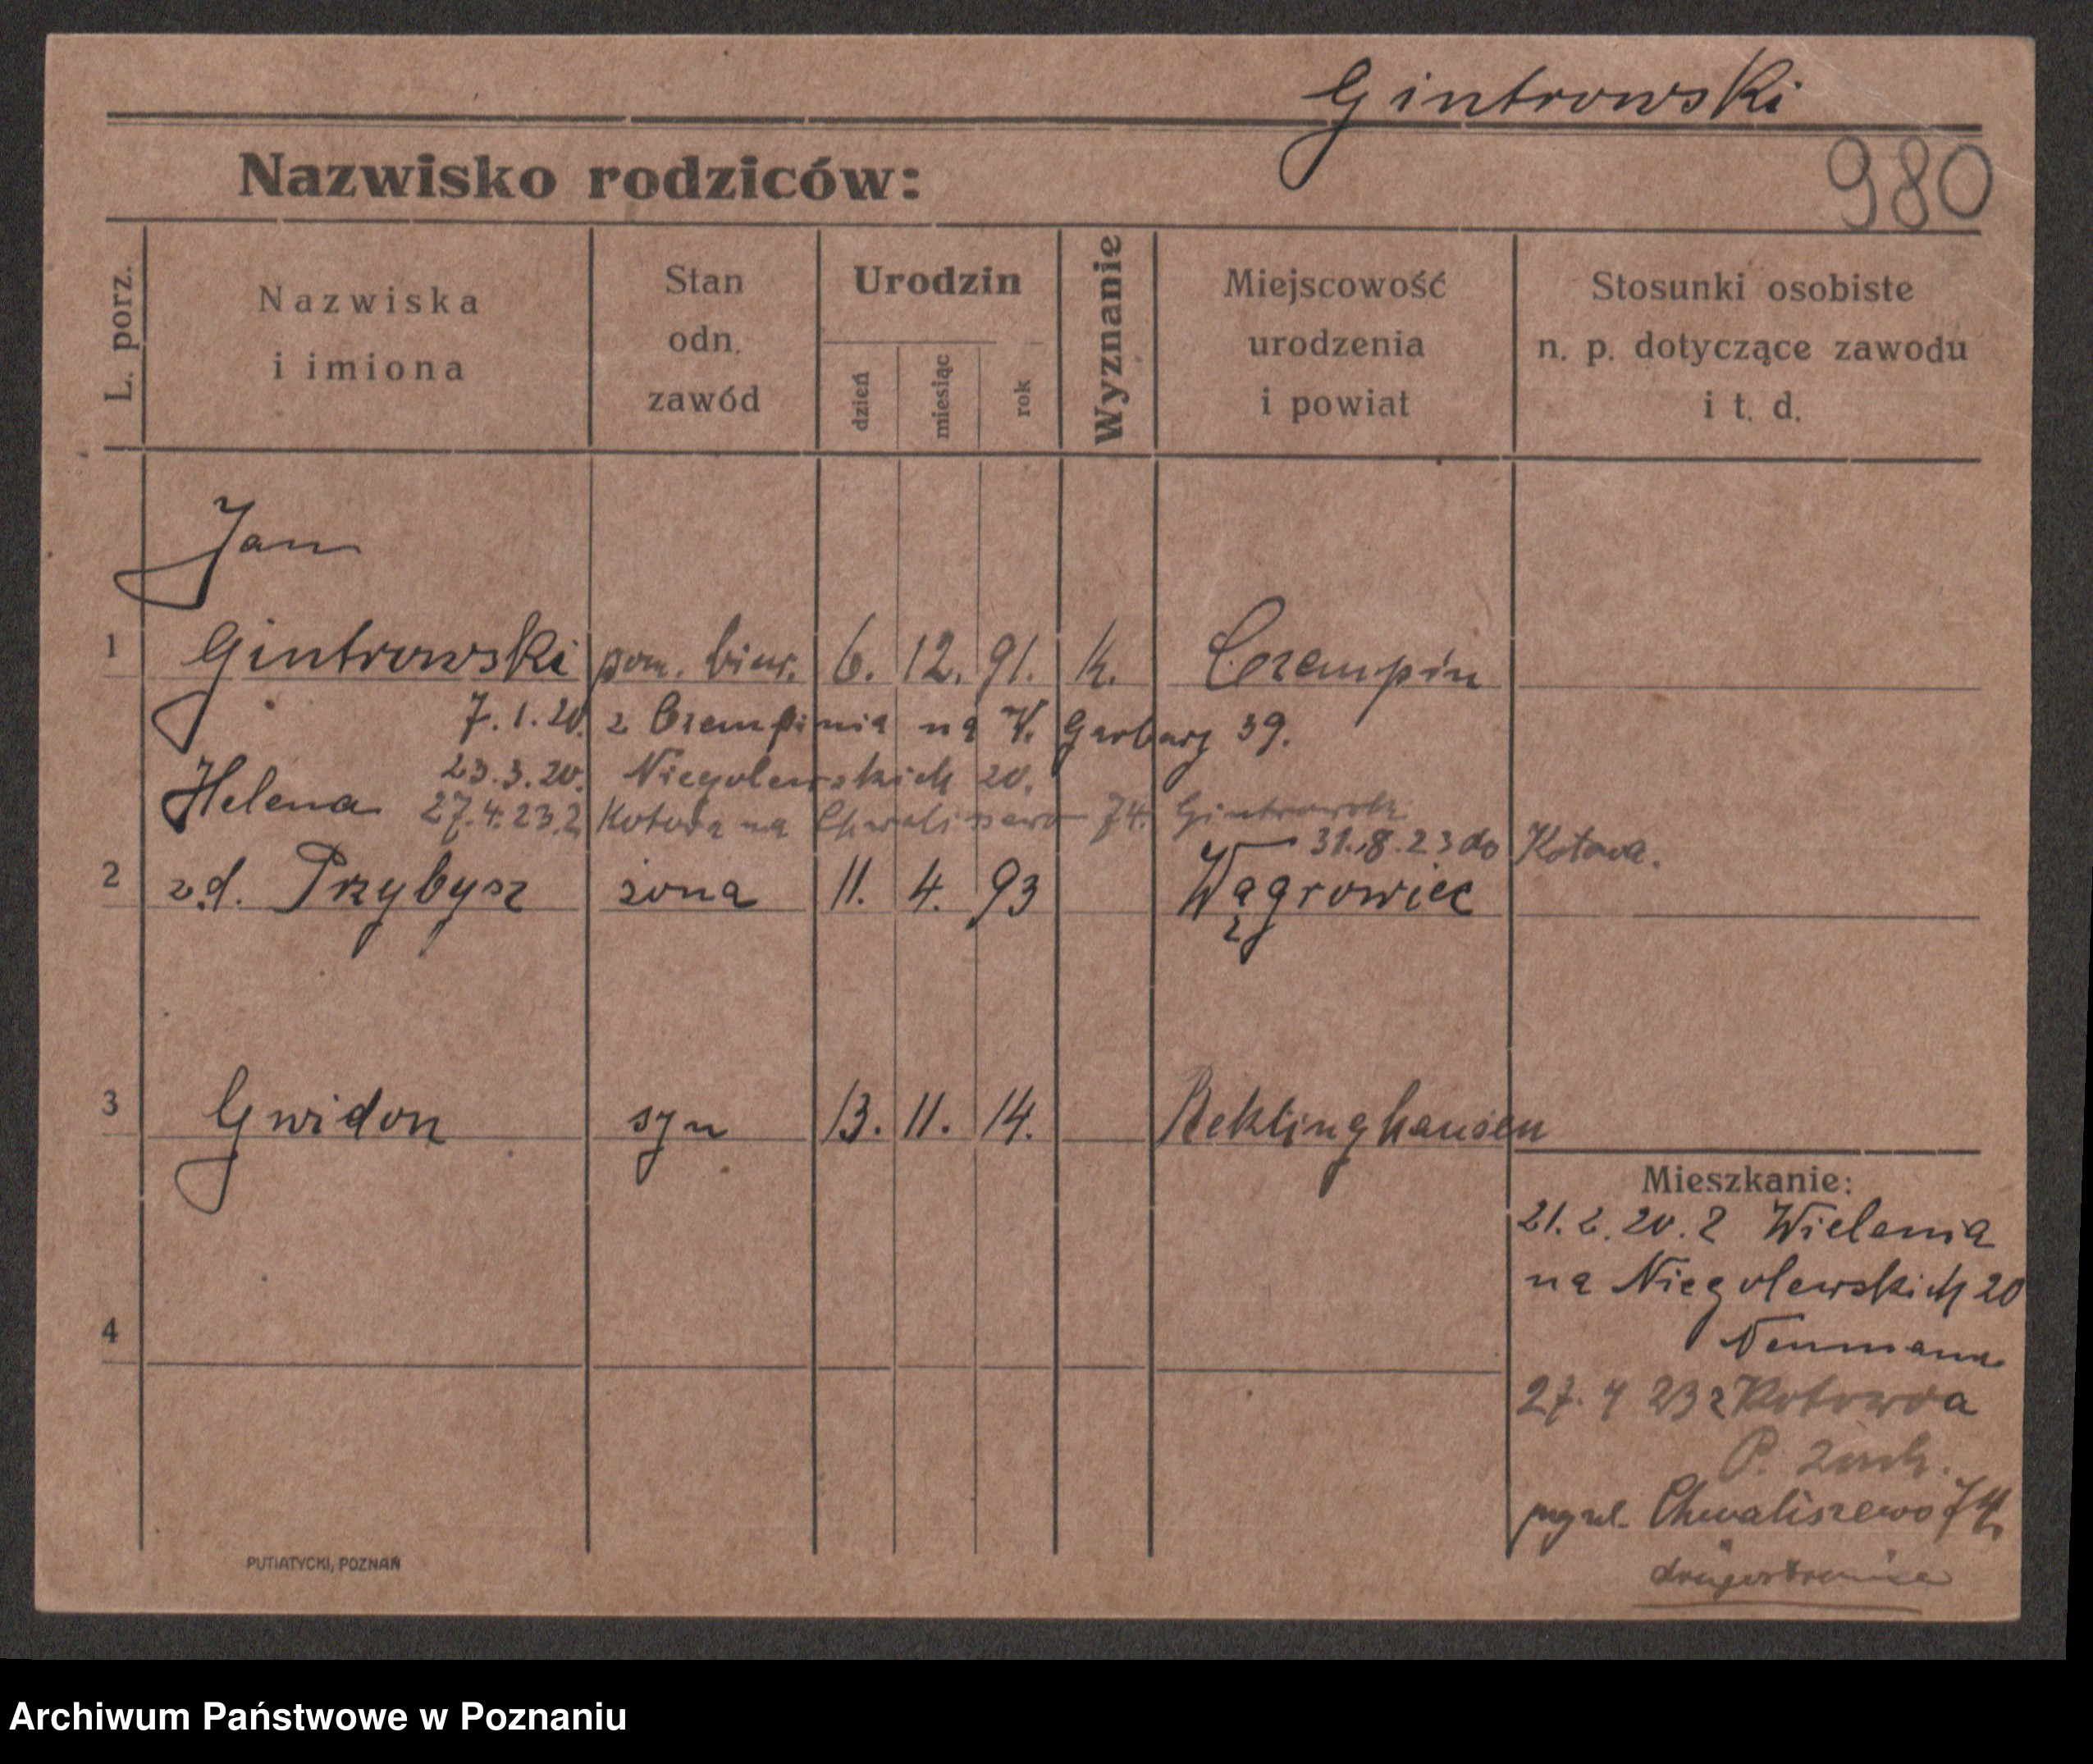 Gintrowski
980
Nazwisko rodziców:
L. porz.
Nazwiska i imiona
Stan odn. zawód
Urodzin
dzień
miesiąc
rok
Wyznanie
Miejscowość urodzenia i powiat
Stosunki osobiste n. p. dotyczące zawodu i t. d.
Jan
1 Gintrowski pom. biur. 6. 12. 91. k. Czempin
7.1.20. z Czempinia na W. Garbary 39.
23.3.20. Niegolewskich 20.
Helena 27.4.23. z Kotowa na Chwaliszewo 74. Gintrowski
31.8.23 do Kotowa.
2 z d. Przybysz żona 11. 4. 93 Wągrowiec
3 Gwidon syn 13. 11. 14. Reklinghausen
Mieszkanie:
21.2.20. z Wielenia
na Niegolewskich 20
Neumann
4
27. 4 23 z Kotowa
P. Zach.
Chwaliszewo 74
PUTIATYCKI, POZNAŃ
Archiwum Państwowe w Poznaniu